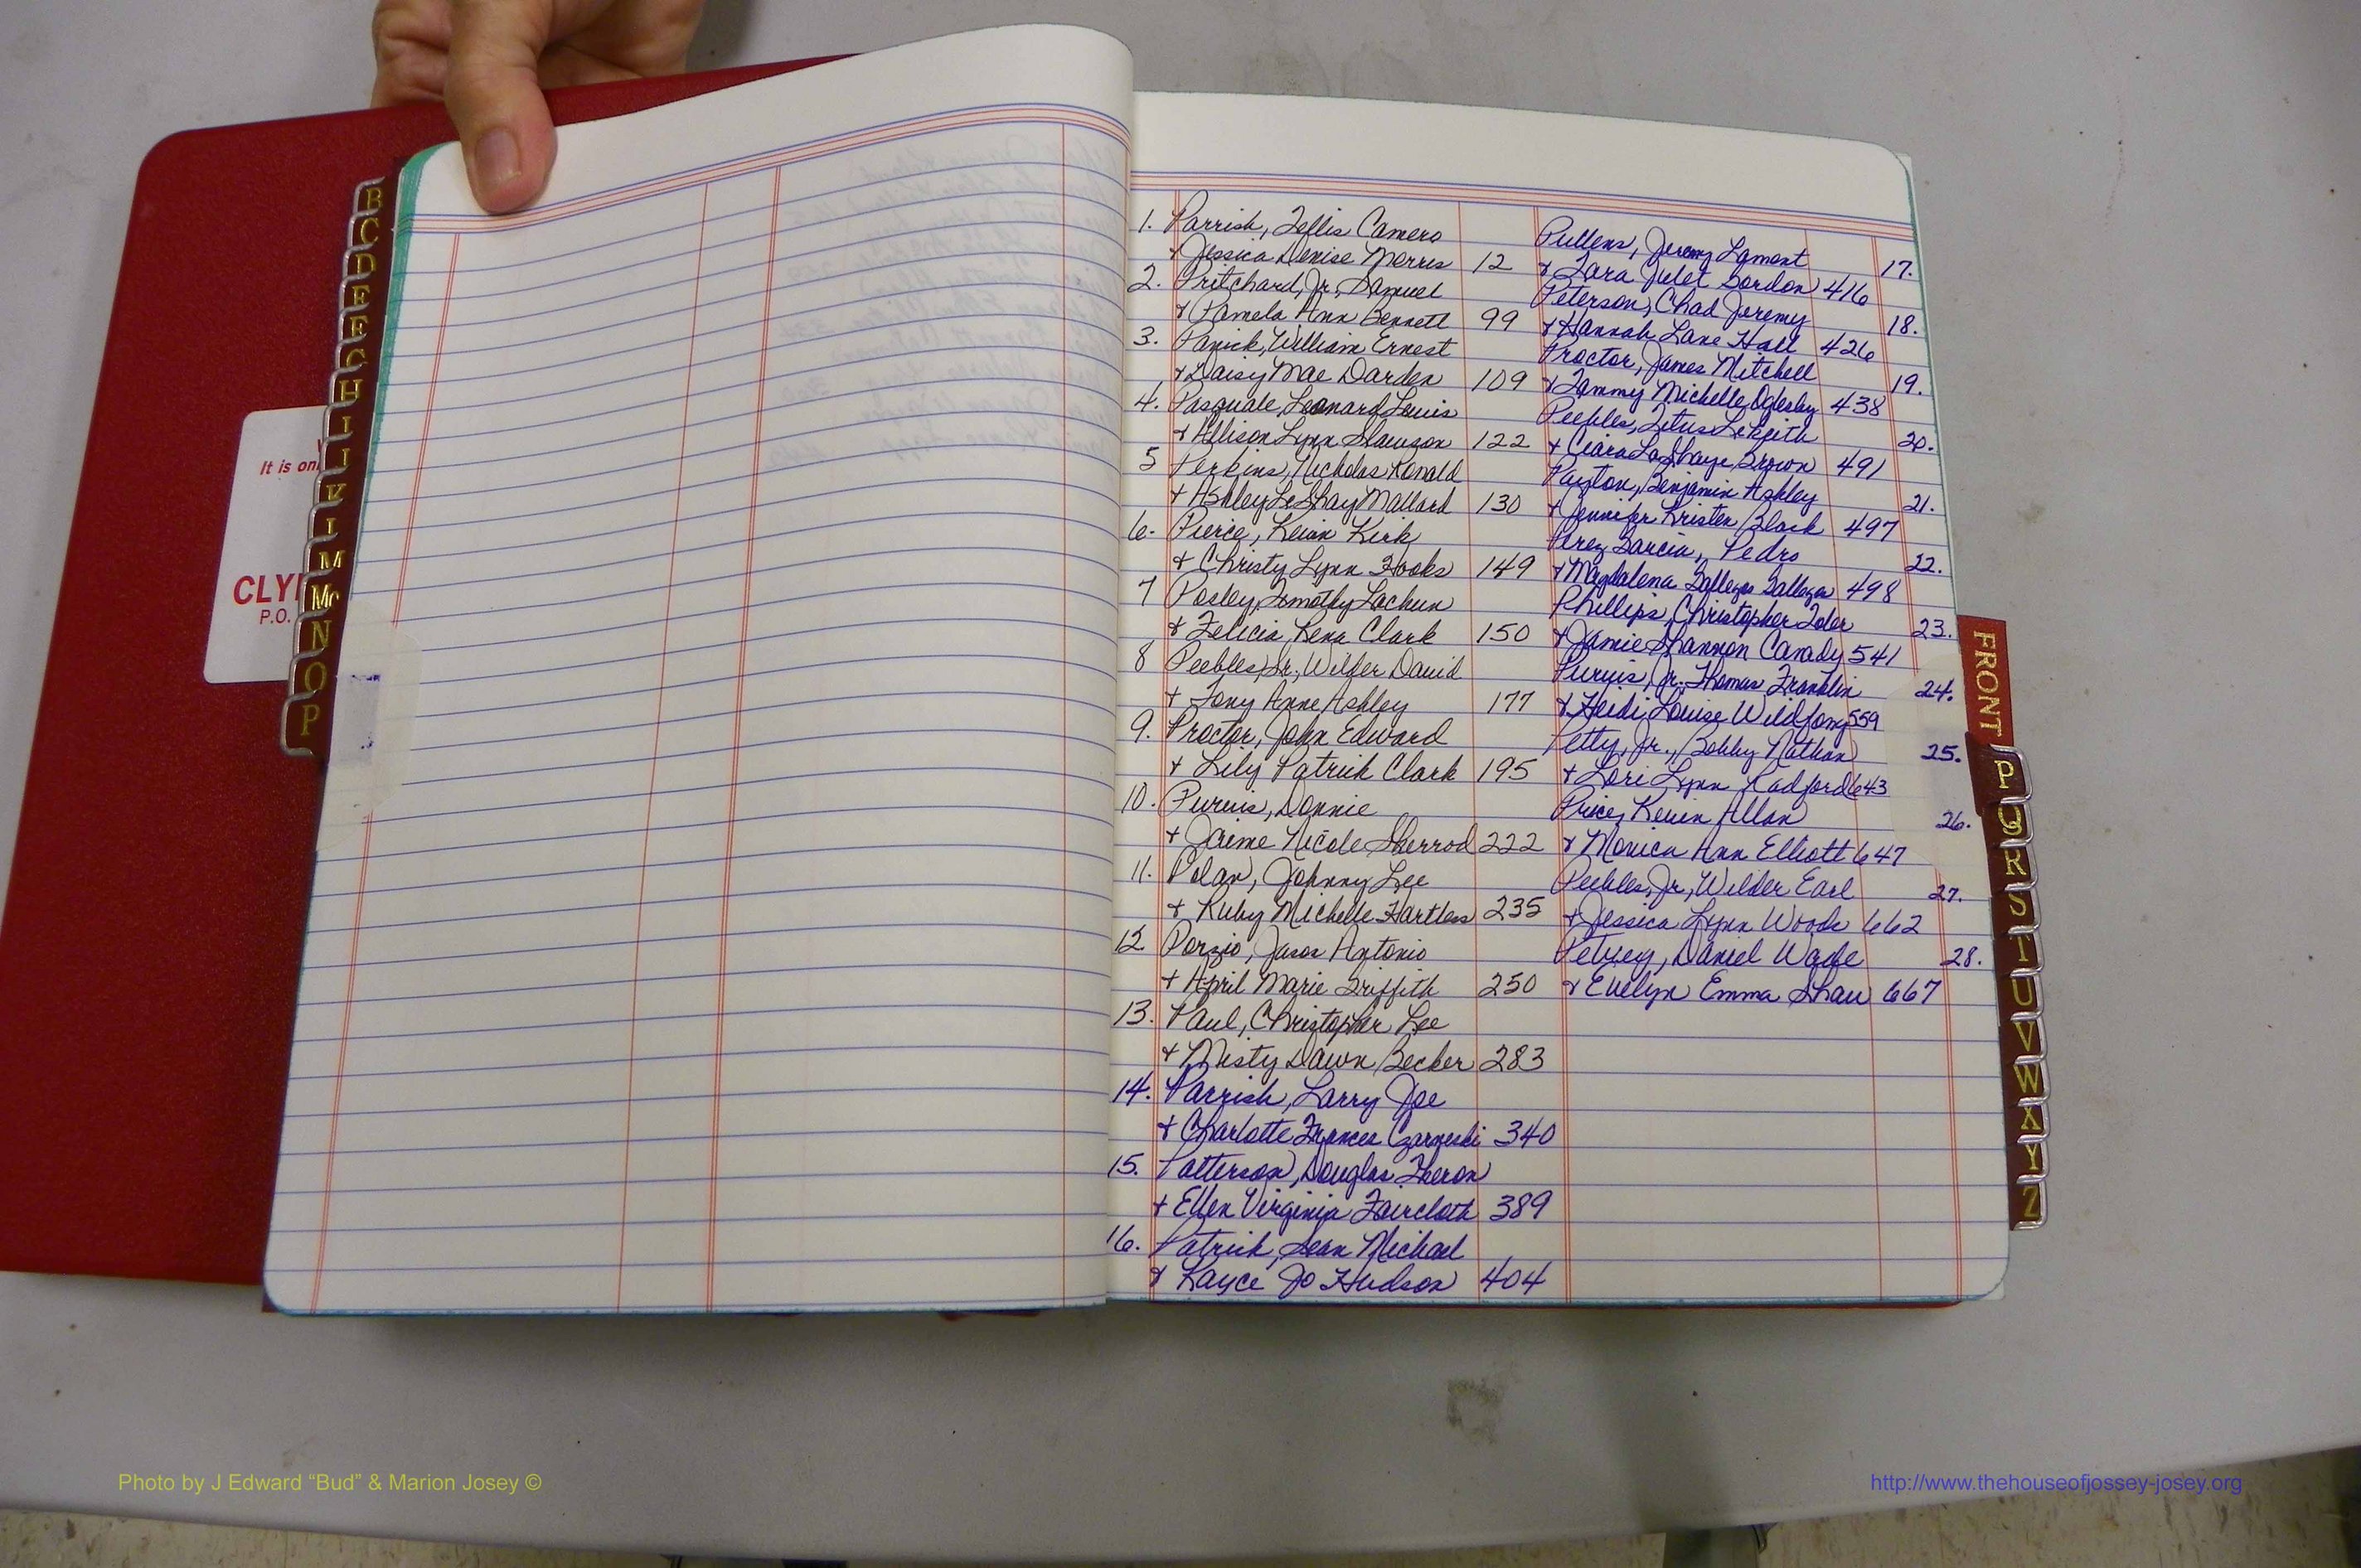 B
C
D
E
F
G
H
I
J
K
L
M
Mc
N
O
P
It is on
CLY
P.O.
1. Parrish, Teffis Camero
+ Jessica Denise Morris 12
2. Pritchard, Jr., Samuel
+ Pamela Ann Bennett 99
3. William Ernest
+ Daisy Mae Darden 109
4. Pasquale, Leonard Louis
+ Allison Lynn Slawson 122
5 Perkins, Nicholas Ronald
+ Ashley LeShay Mallard 130
6. Pierce, Keian Kirk
+ Christy Lynn Hooks 149
7 Posley, Timothy Lachun
+ Felicia Rena Clark 150
8 Peebles, Sr., Wilder David
+ Tony Anne Ashley 177
9. Proctor, John Edward
+ Lily Patrick Clark 195
10. Purvis, Donnie
+ Jaime Nicole Sherrod 222
11. Polan, Johnny Lee
+ Ruby Michelle Hartless 235
12. Porzio, Jason Antonio
+ April Marie Griffith 250
13. Paul, Christopher Lee
+ Misty Dawn Becker 283
14. Parrish, Larry Joe
+ Charlotte Frances Czarneski 340
15. Patterson, Douglas Theron
+ Ellen Virginia Faircloth 389
16. Patrick, Sean Michael
+ Kayce Jo Hudson 404
Pullens, Jeremy Lamont 17.
+ Tara Julet Gordon 416
Peterson, Chad Jeremy 18.
+ Hannah Lane Hall 426
Proctor, James Mitchell 19.
+ Tammy Michelle Oglesby 438
Peebles, Titus Lekeith 20.
+ Ciara LaShaye Brown 491
Payton, Benjamin Ashley 21.
+ Jennifer Kristen Black 497
Perez Garcia, Pedro 22.
+ Magdalena Gallegos Gallegos 498
Phillips, Christopher Toler 23.
+ Jamie Shannon Canady 541
Purvis, Jr., Thomas Franklin 24.
+ Heidi Louise Wildfong 559
Petty, Jr., Bobby Nathan 25.
+ Lori Lynn Radford 643
Price, Kevin Allan 26.
+ Monica Ann Elliott 647
Peebles, Jr., Wilder Earl 27.
+ Jessica Lynn Woods 662
Petrey, Daniel Wade 28.
+ Evelyn Emma Shaw 667
FRONT
P
Q
R
S
T
U
V
W
X
Y
Z
Photo by J Edward “Bud” & Marion Josey ©
http://www.thehouseofjossey-josey.org